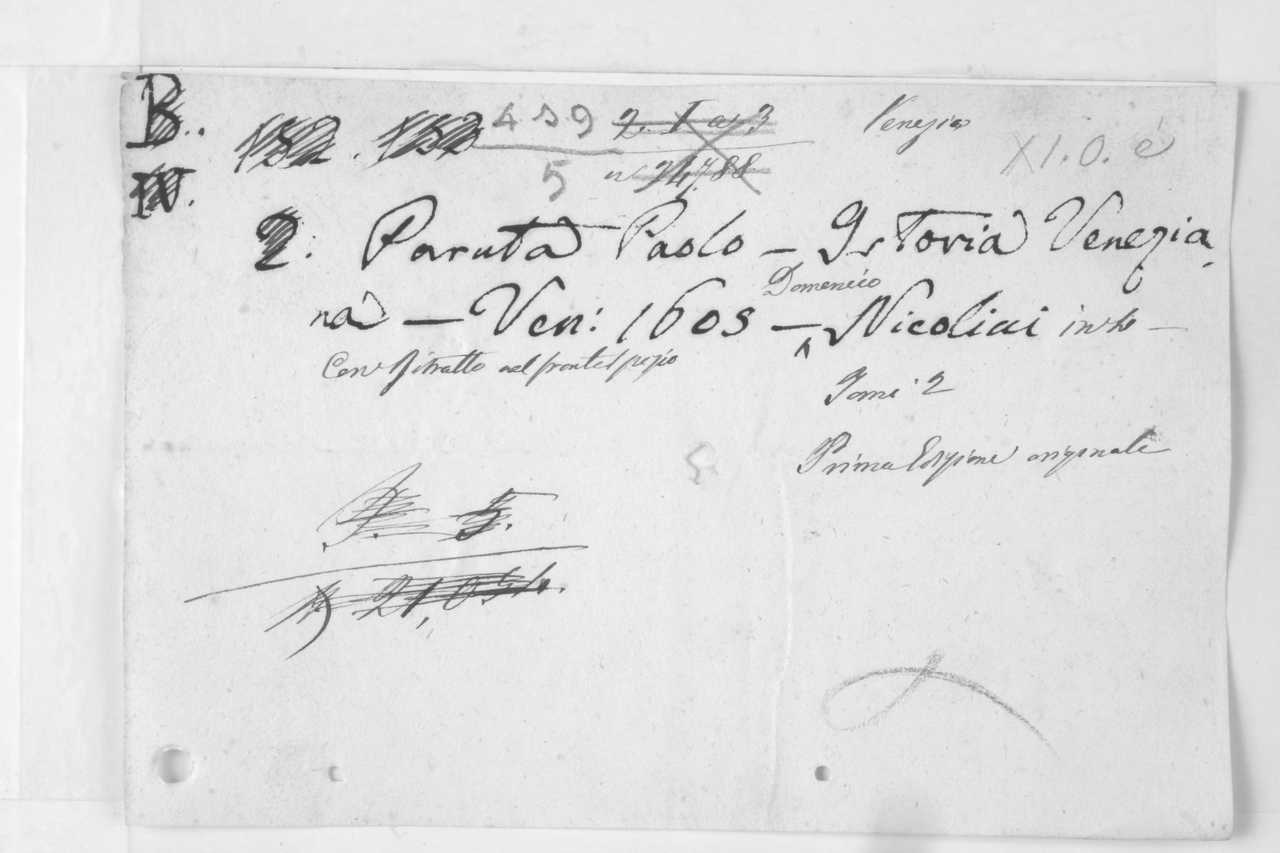 B.. 459 Venezia XI.0.é
5
IV.
2. Paruta Paolo – Istoria Venezia
na – Ven: 1605 – Domenico Nicolini in 4o –
Con Ritratto nel frontespizio
Tomi 2
Prima Edizione originale
J. 5.
21,054.